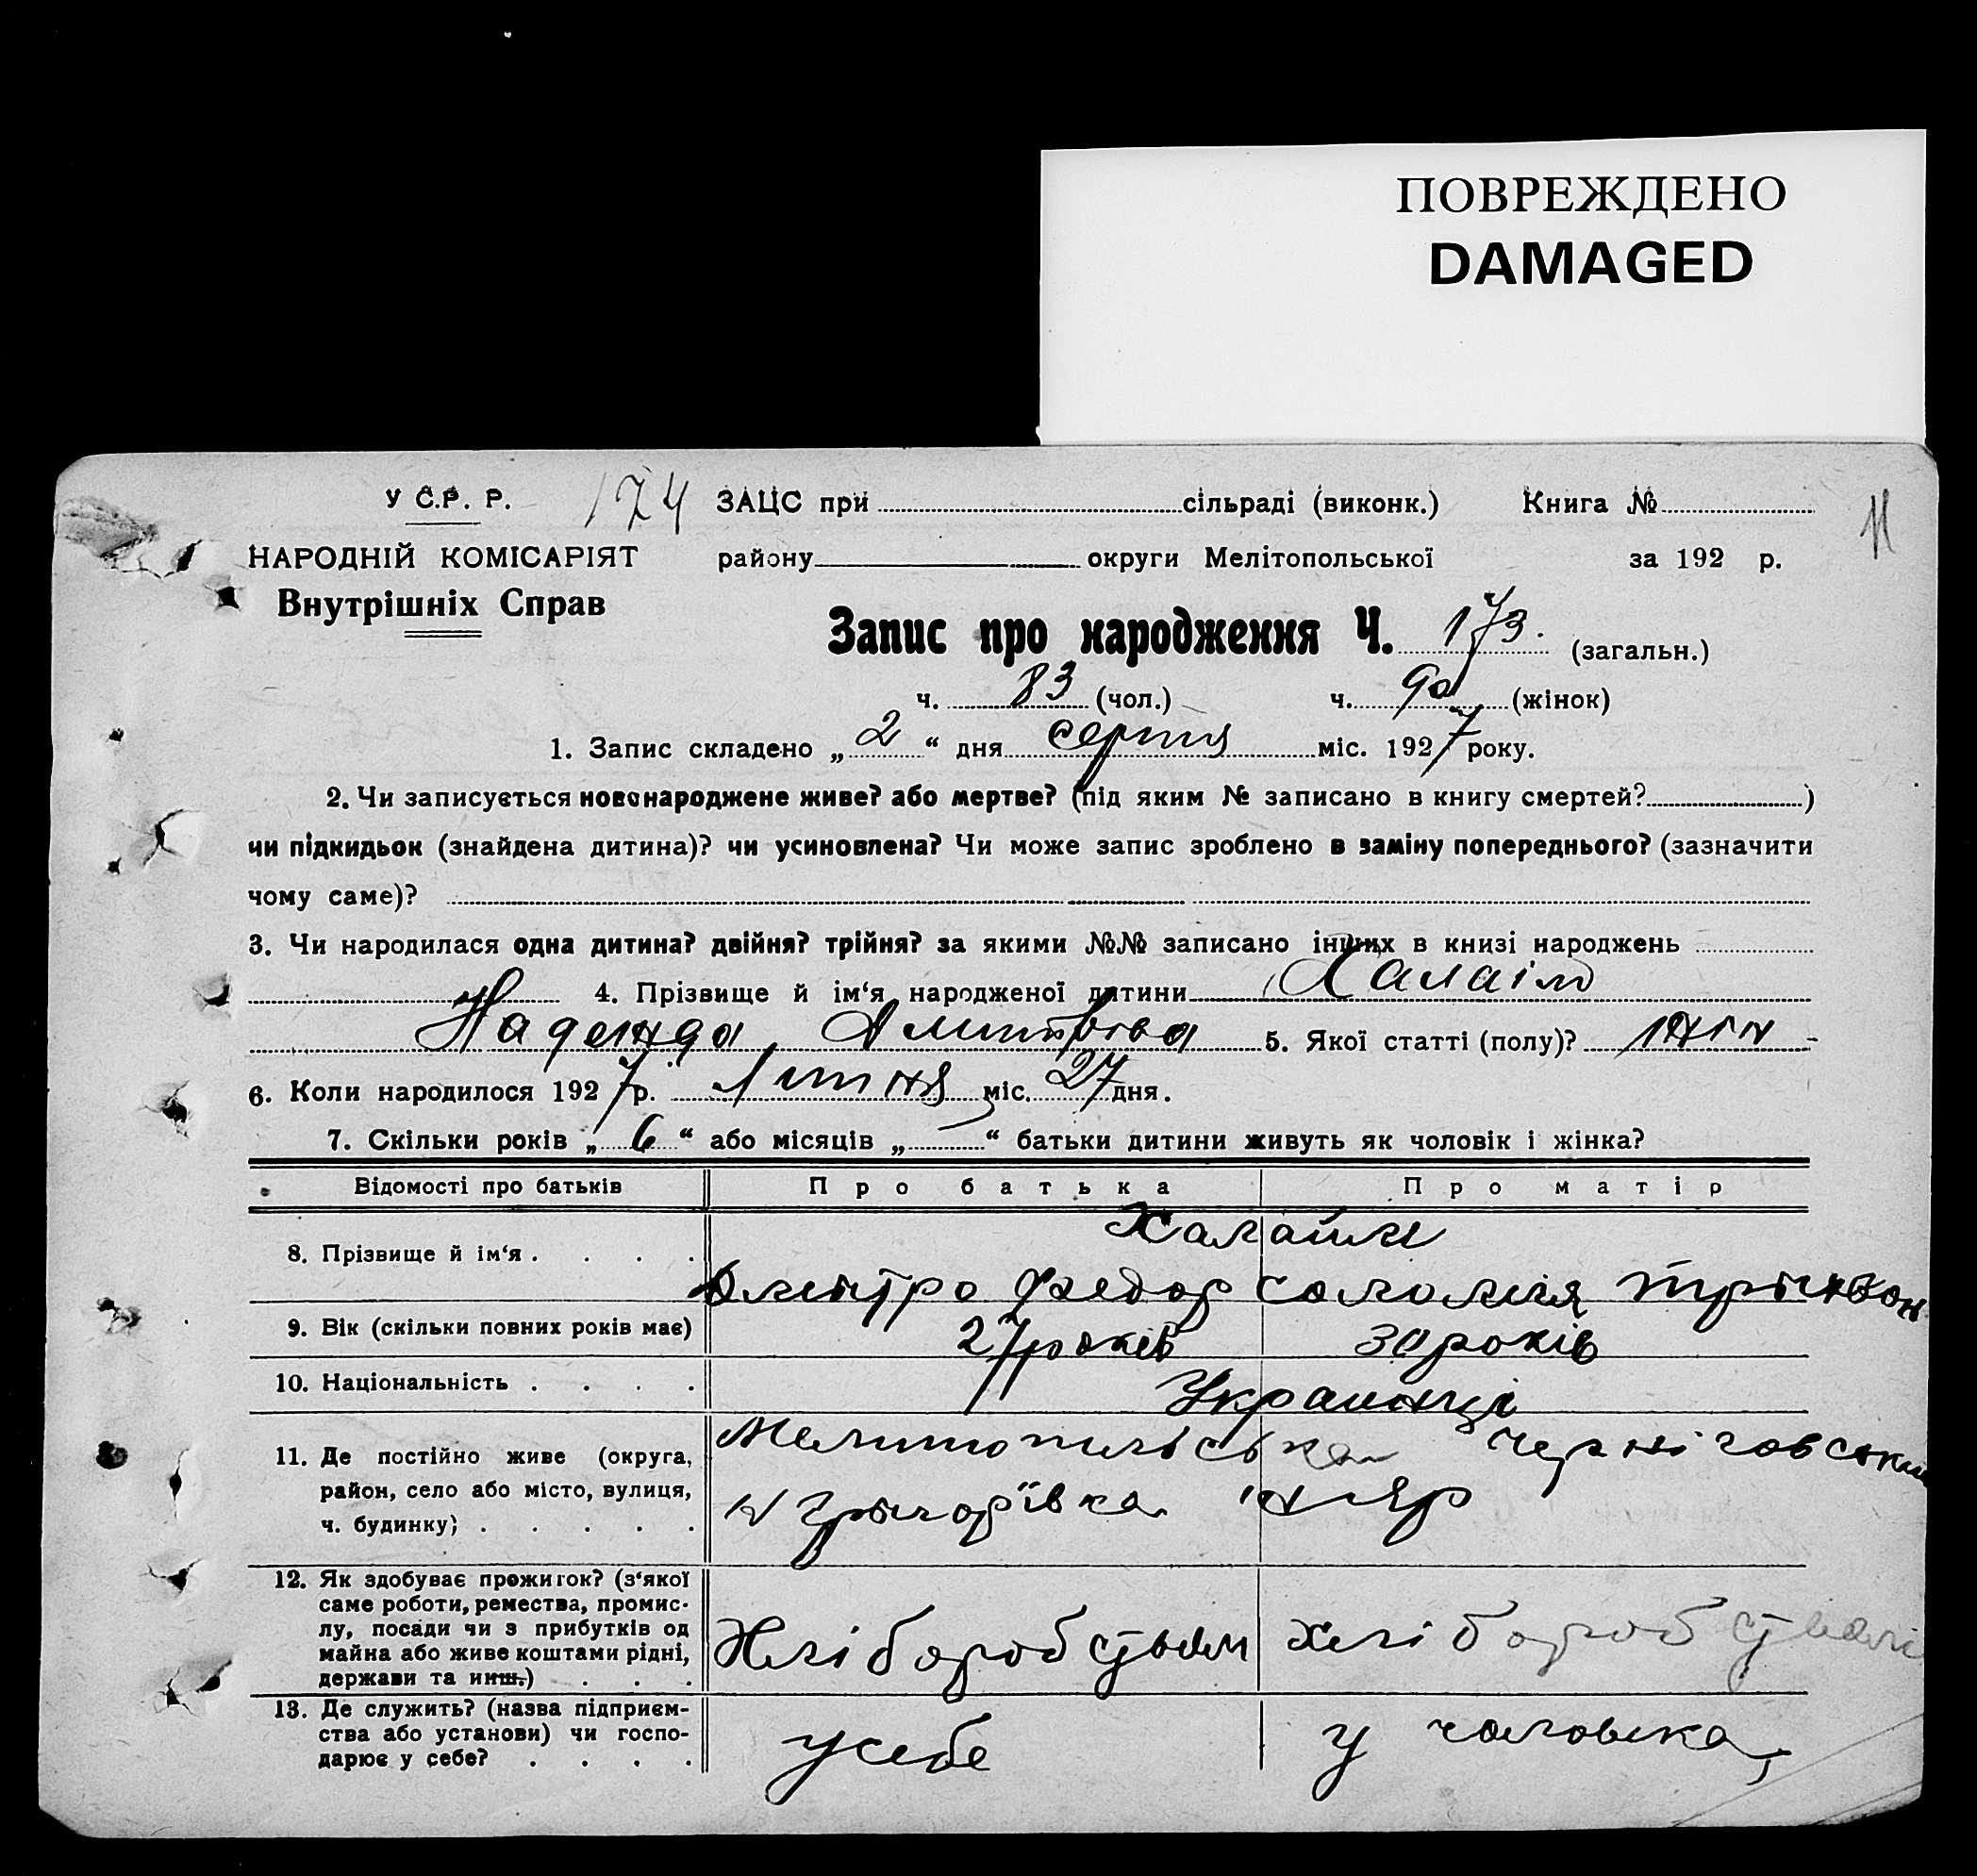 ПОВРЕЖДЕНО
DAMAGED
У С.Р. Р. 174 ЗАЦС при сільраді (виконк.) Книга № 11
НАРОДНІЙ КОМІСАРІЯТ району округи Мелітопольської за 192 р.
Внутрішніх Справ
Запис про народження Ч. 173. (загальн.)
ч. 83 (чол.) ч. 90 (жінок)
1. Запис складено „ 2 “ дня серпня міс. 1927 року.
2. Чи записується новонароджене живе? або мертве? (під яким № записано в книгу смертей? )
чи підкидьок (знайдена дитина)? чи усиновлена? Чи може запис зроблено в заміну попереднього? (зазначити
чому саме)?
3. Чи народилася одна дитина? двійня? трійня? за якими №№ записано інших в книзі народжень
4. Прізвище й ім‘я народженої дитини Халаім
Надежда Дмитровна 5. Якої статті (полу)? жін
6. Коли народилося 1927 р. Липня міс. 27 дня.
7. Скільки років „ 6 “ або місяців „ “ батьки дитини живуть як чоловік і жінка?
Відомості про батьків Про батька Про матір
Халаим
8. Прізвище й ім‘я . . . .
Дмитро Федор Соломия Трыхвон
9. Вік (скільки повних років має) 27 років 30 років
10. Національність . . . . Украинці
11. Де постійно живе (округа, Мелитопильська Черніговськи
район, село або місто, вулиця, Грыгорївка
ч. будинку) . . . . .
12. Як здобуває прожиток? (з‘якої
саме роботи, ремества, промис-
лу, посади чи з прибутків од Хліборобством хліборобством
майна або живе коштами рідні,
держави та инш.) . . .
13. Де служить? (назва підприєм-
ства або установи) чи госпо- у себе у чоловика
дарює у себе? . . . .